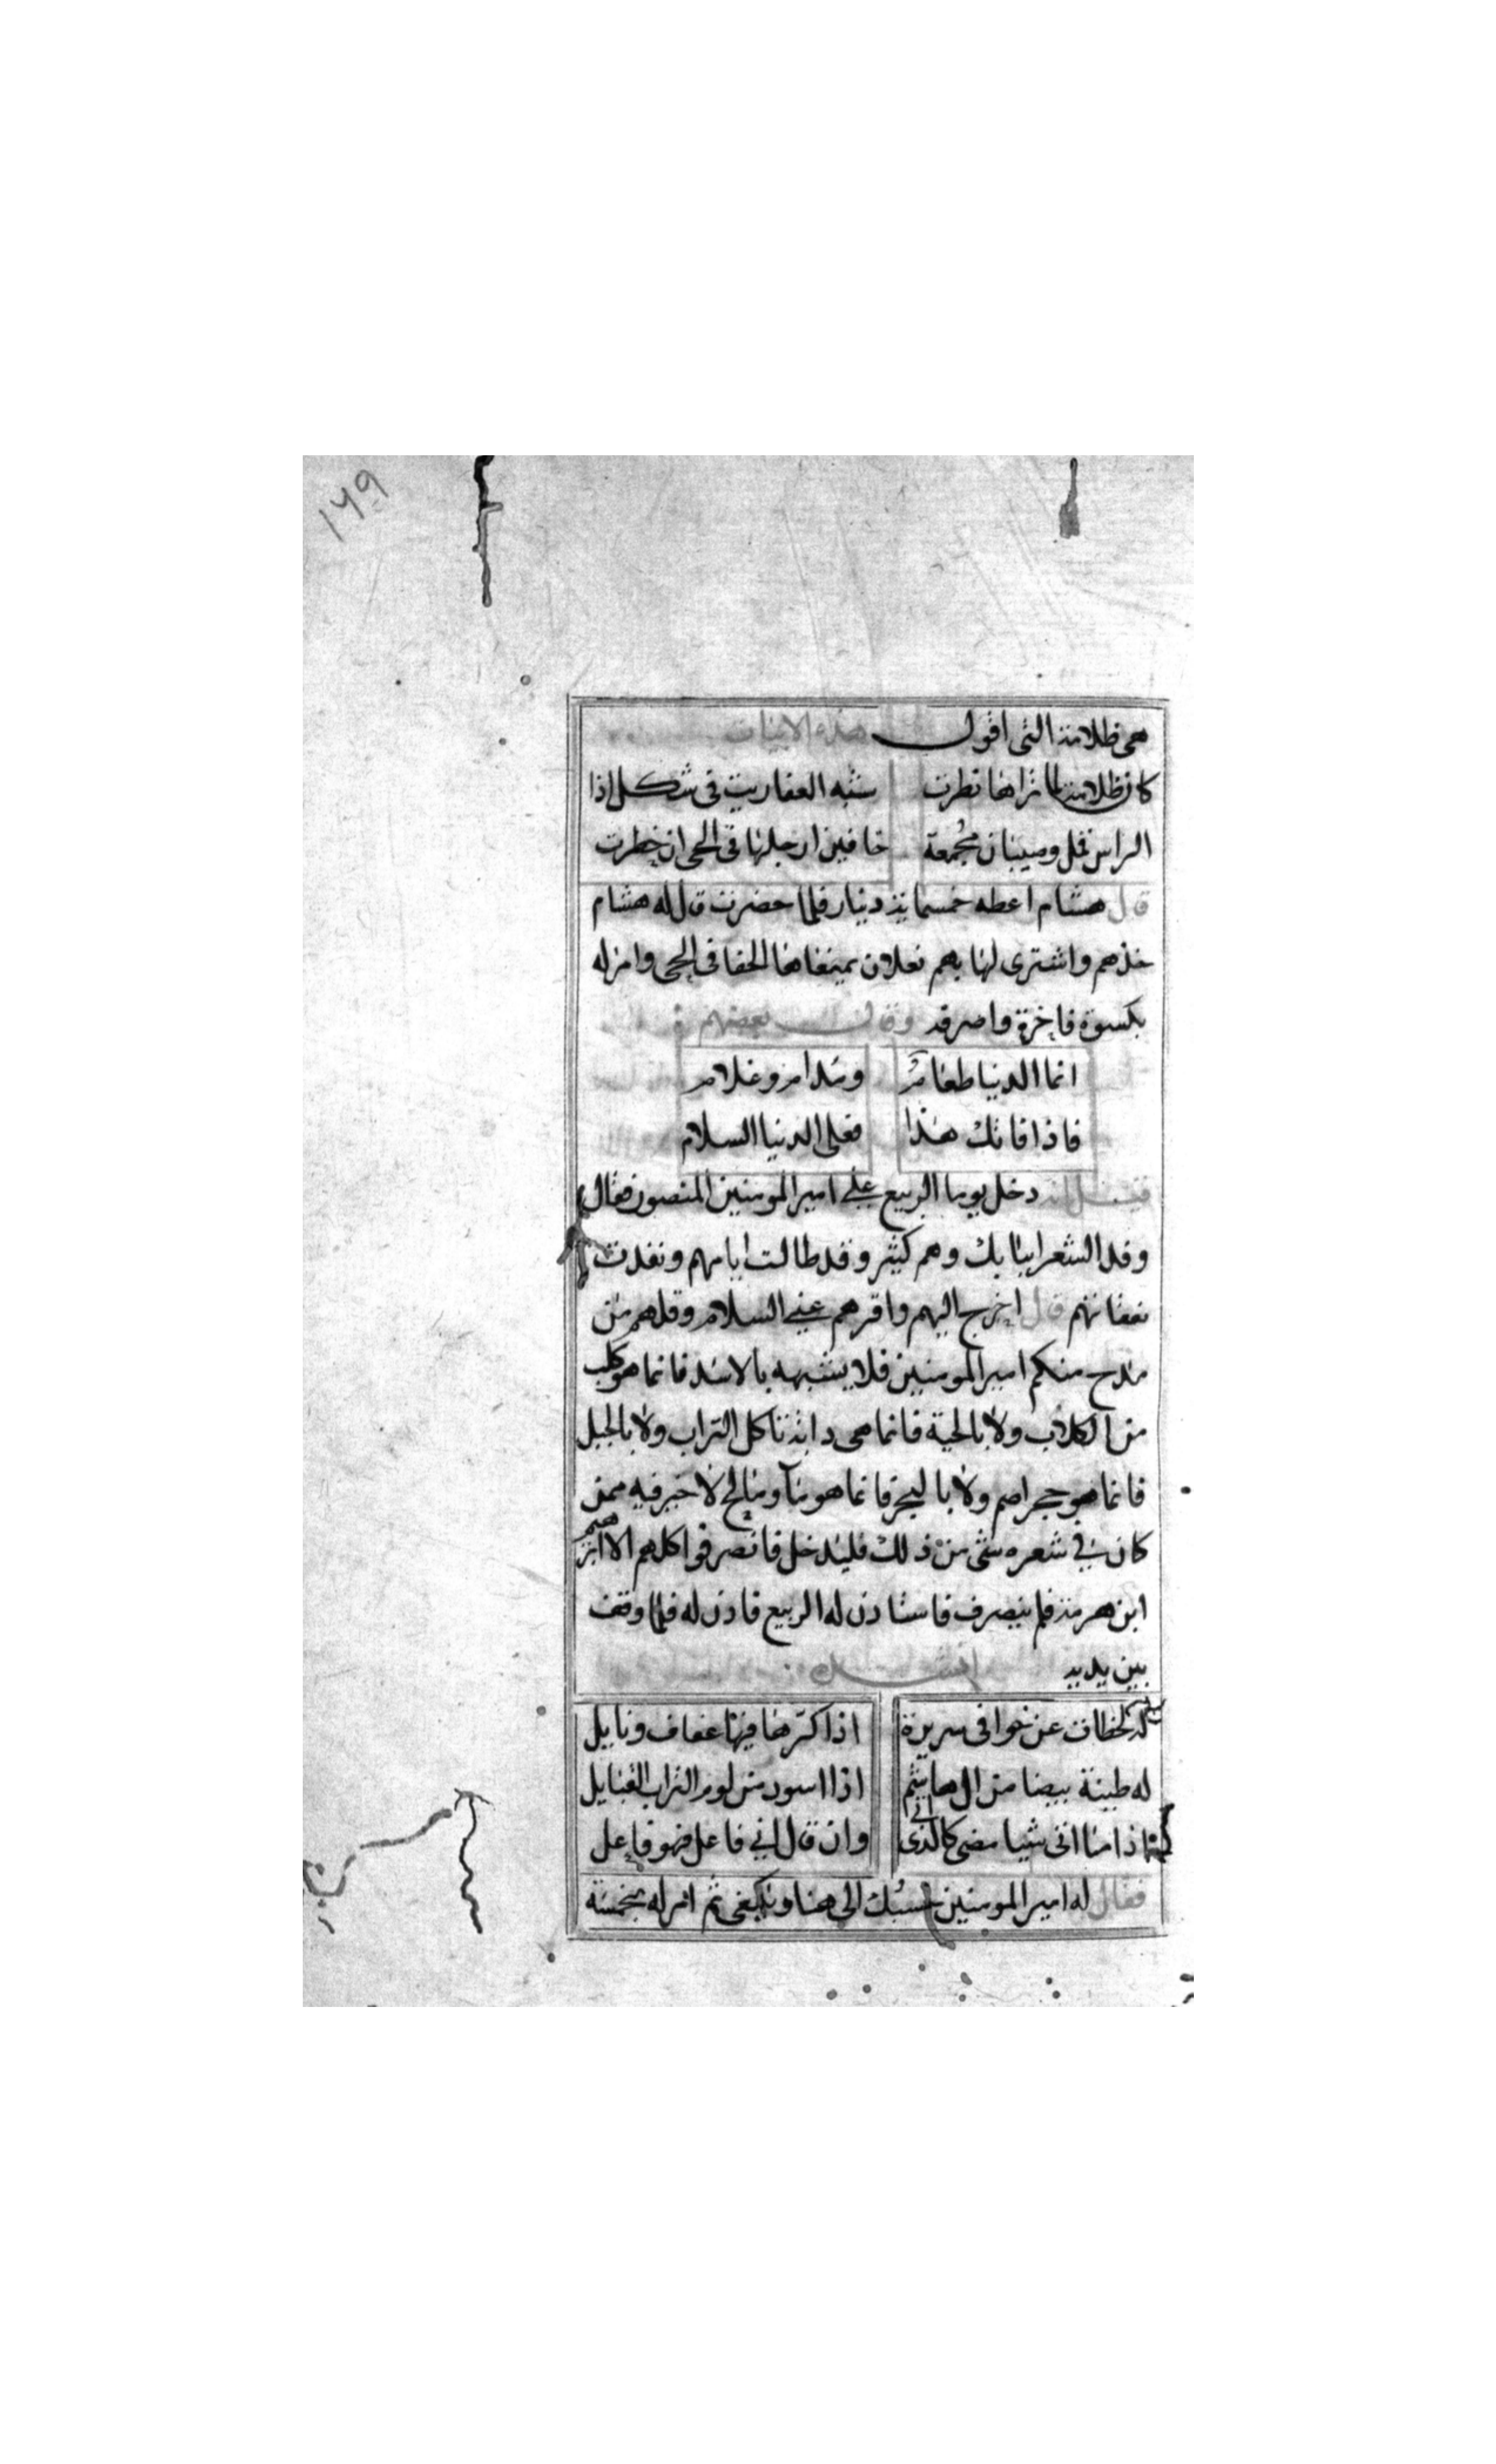 ١٧٩
هى ظلامة التى اقول هذه الابيات
كان ظلامة لما تراها نظرت شبه العفاريت فى شكل اذا
الراس قمل وصيبان مجمعة خافين ارجلها فى الحى ان خطرت
قال هشام اعطه خمسماية دينار فلما حضرت قال له هشام
خذهم واشترى لها بهم نعلان يمنعاها الحفا فى الحى وامر له
بكسوة فاخرة واصرفه وقال بعضهم
انما الدنيا طعام ومدام وغلام
فاذا فاتك هذا فعلى الدنيا السلام
قيل انه دخل يوما الربيع على امير المومنين المنصور فقال
وفد الشعرا ببابك وهم كثير وقد طالت ايامهم ونفدت
نفقاتهم قال اخرج اليهم واقرهم عنى السلام وقلهم من
مدح منكم امير المومنين فلا يشبهه بالاسد فانما هو كلب
من الكلاب ولا بالحية فانما هى دابة تاكل التراب ولا بالجبل
فانما هو حجر اصم ولا بالبحر فانما هو ماء ومالح لا خير فيه ممن
كان فى شعره شى من ذلك فليدخل فانصرفوا كلهم الا ابرهيم
ابن هرمة فلم ينصرف فاستاذن له الربيع فاذن له فلما وقف
بين يديه انشد
له لحظات عن خوافى سريرة اذا كرها فيها عفاف ونايل
له طينة بيضا من ال هاشم اذا اسود من لوم التراب القبايل
اذا ما اتى شيا مضى كالذى اتى وان قال انى فاعل فهو فاعل
فقال له امير المومنين حسبك الى هنا ويكفى ثم امر له بخمسة